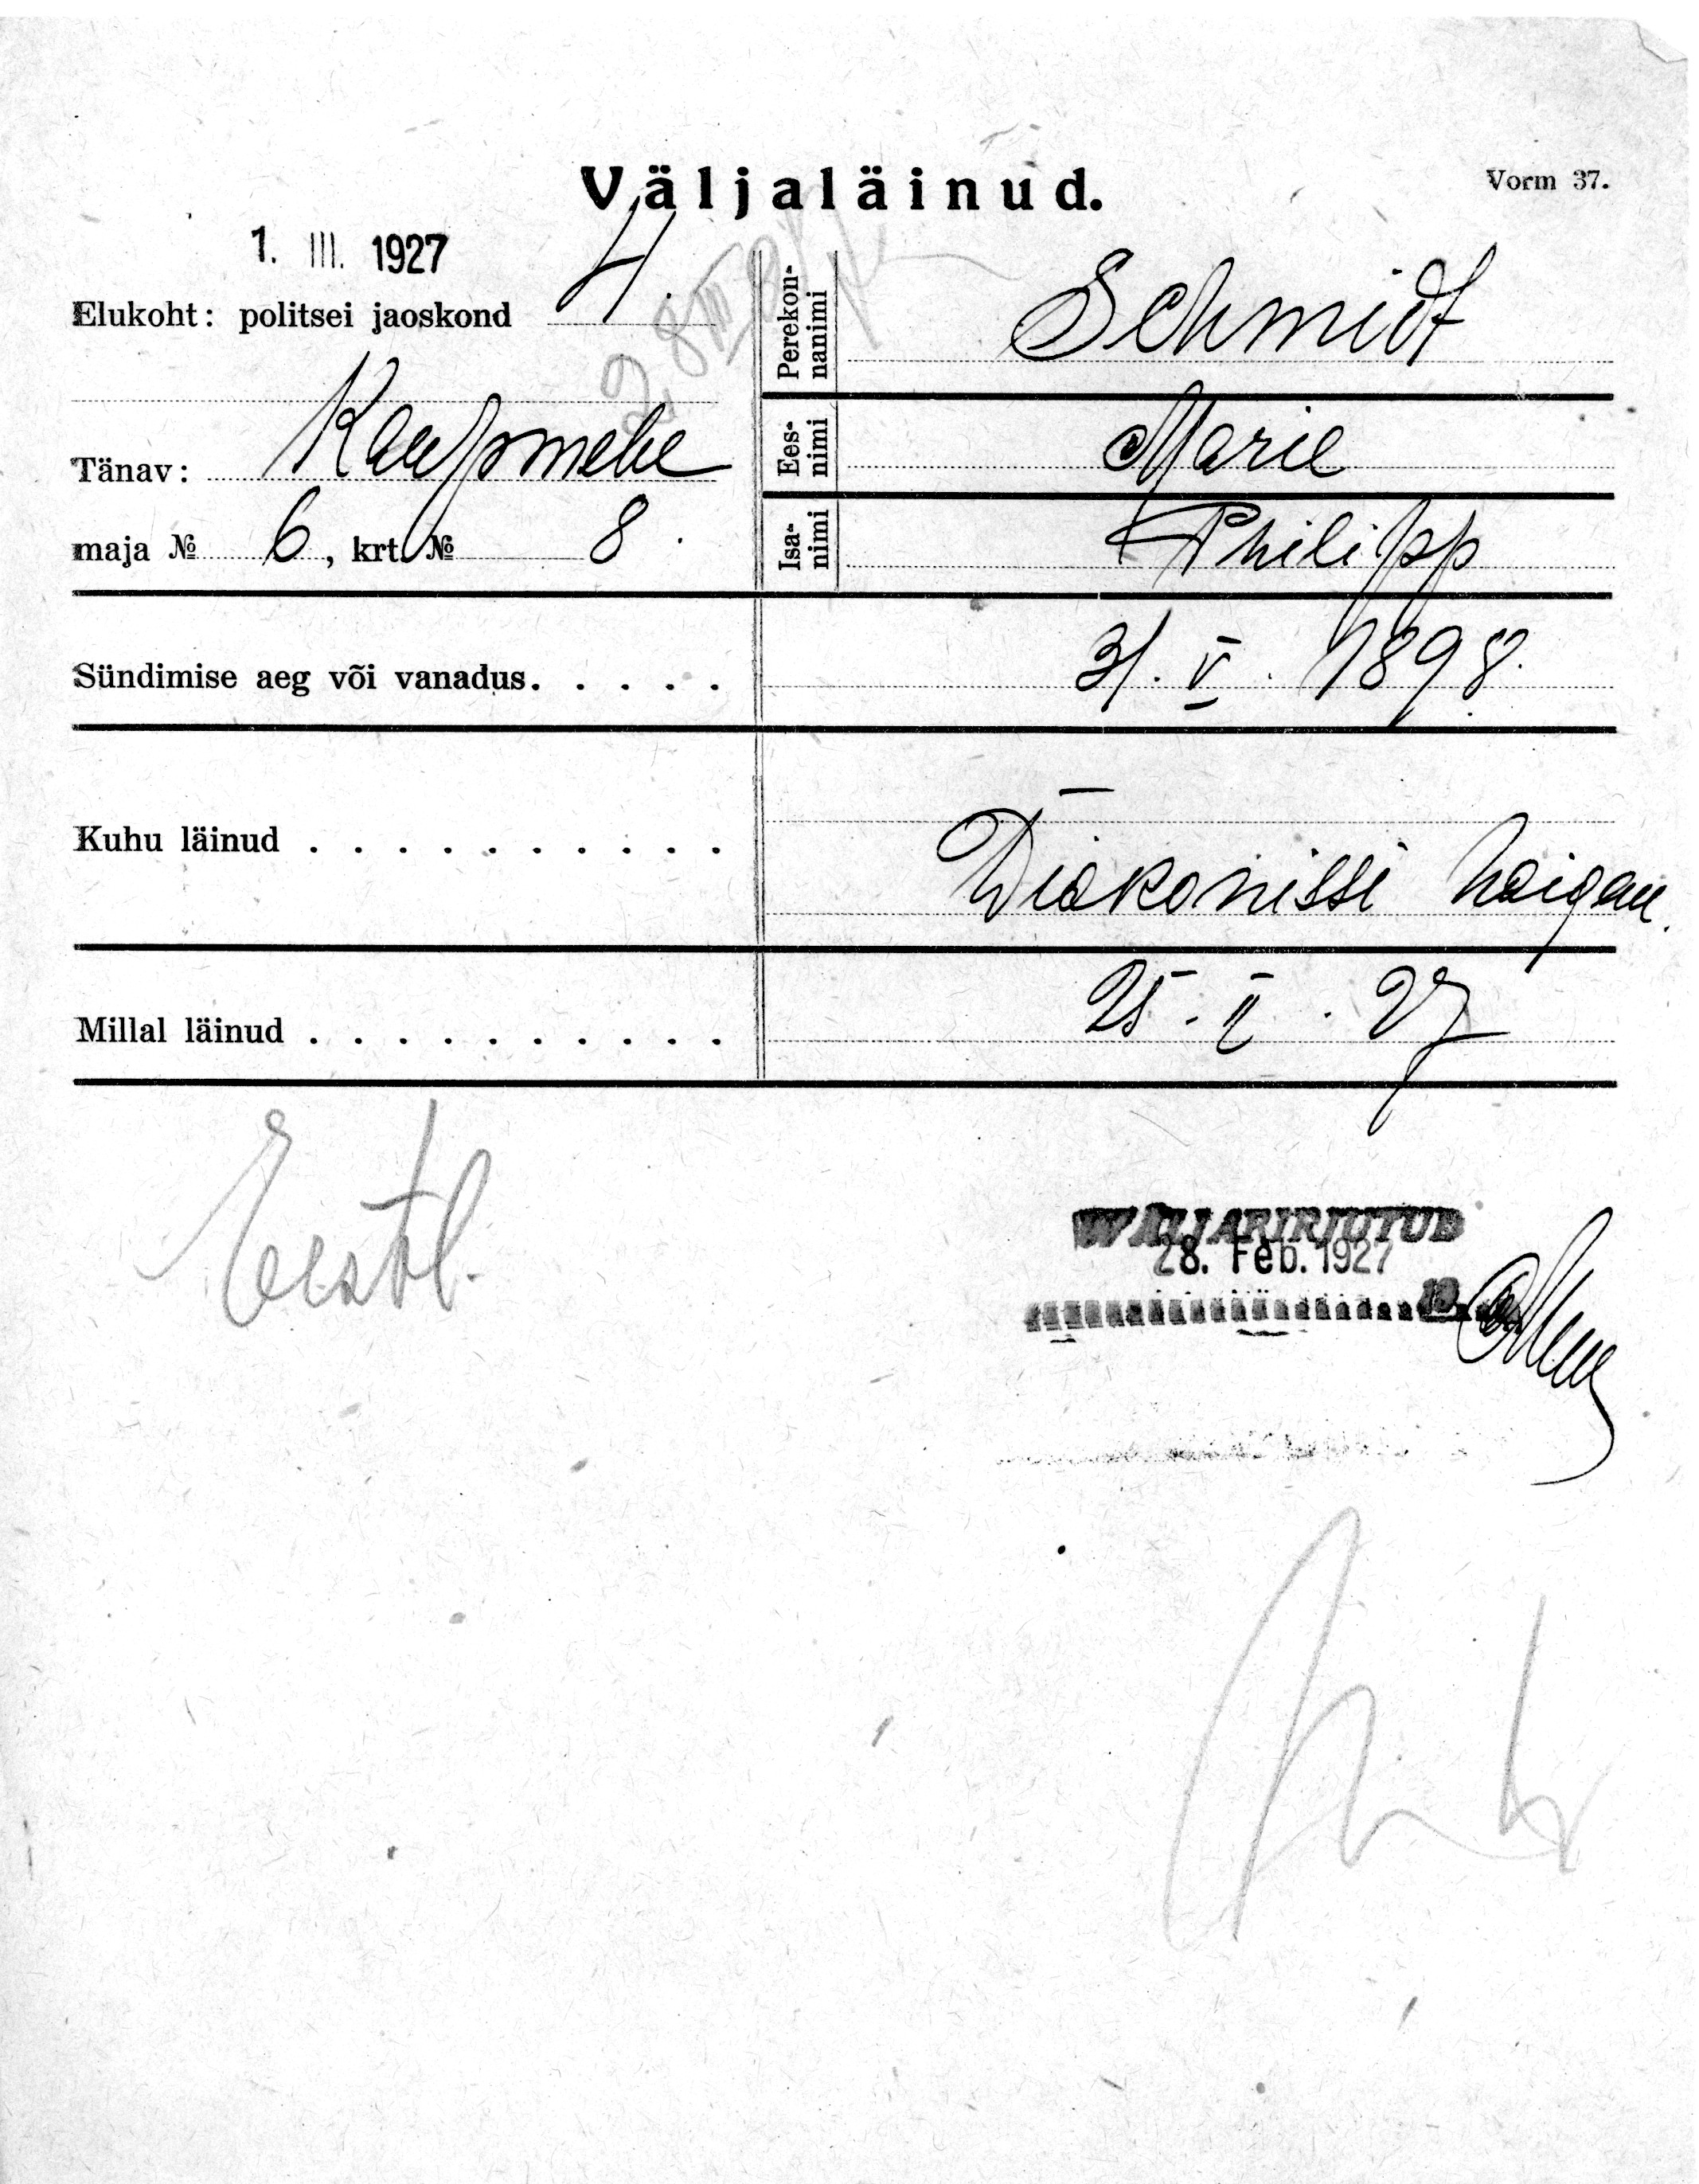 Väljaläinud.
Vorm 37.
1. III. 1927
Elukoht: politsei jaoskond 4.
Tänav: Kaupmehe
maja № 6, krt. № 8.
Perekonnanimi Schmidt
Eesnimi Marie
Isanimi Philipp
Sündimise aeg või vanadus..... 31. V. 1898.
Kuhu läinud .......... Diakonissi haigem.
Millal läinud .......... 25. II. 27
Eestl.
WÄLJAKIRJUTUD
28. Feb. 1927
19